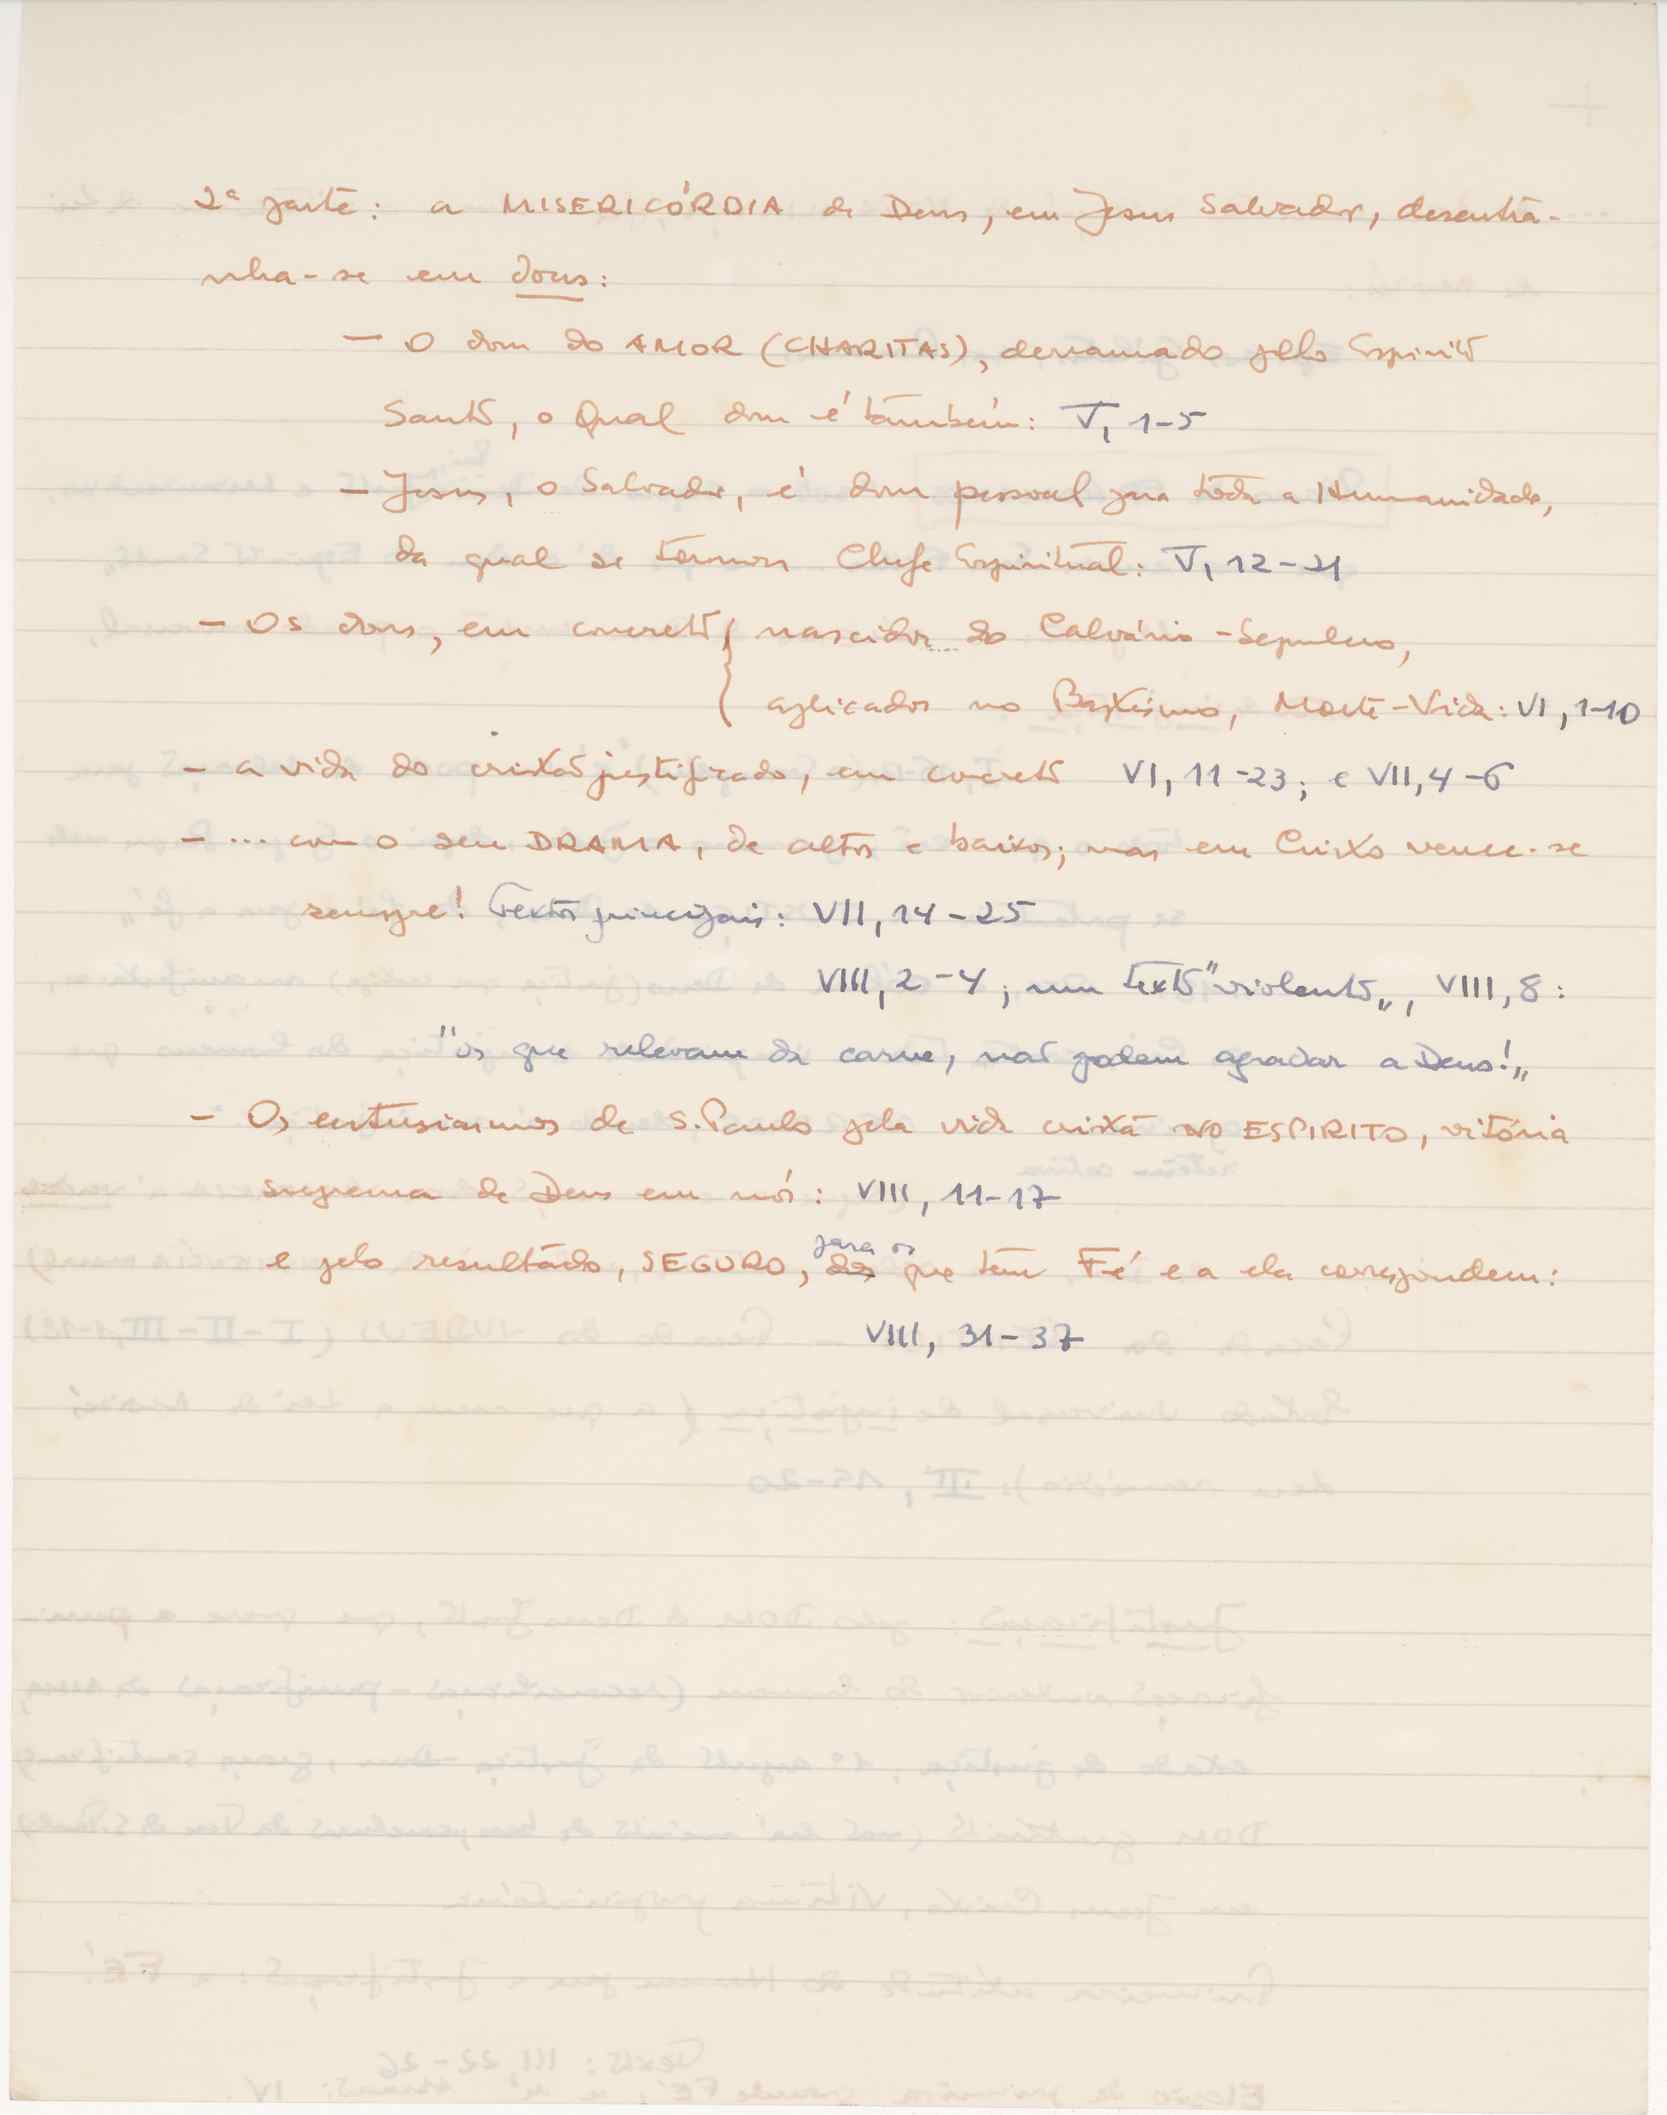 2ª parte: a MISERICÓRDIA de Deus, em Jesus Salvador, desentra-
nha-se em dons:
— O dom do AMOR (CHARITAS), derramado pelo Espírito
Santo, o Qual dom é também: V, 1-5
— Jesus, o Salvador, é dom pessoal para toda a Humanidade,
da qual se tornou Chefe Espiritual: V, 12-21
— Os dons, em concreto { nascidos do Calvário-Sepulcro,
aplicados no Baptismo, Morte-Vida: VI, 1-10
— a vida do cristão justificado, em concreto VI, 11-23; e VII, 4-6
— ... com o seu DRAMA, de altos e baixos; mas em Cristo vence-se
sempre! Textos principais: VII, 14-25
VIII, 2-4; um texto "violento", VIII, 8:
"os que relevam da carne, não podem agradar a Deus!"
— Os entusiasmos de S. Paulo pela vida cristã no ESPIRITO, vitória
suprema de Deus em nós: VIII, 11-17
para os
e pelo resultado, SEGURO, dos que têm Fé e a ela correspondem:
VIII, 31-37